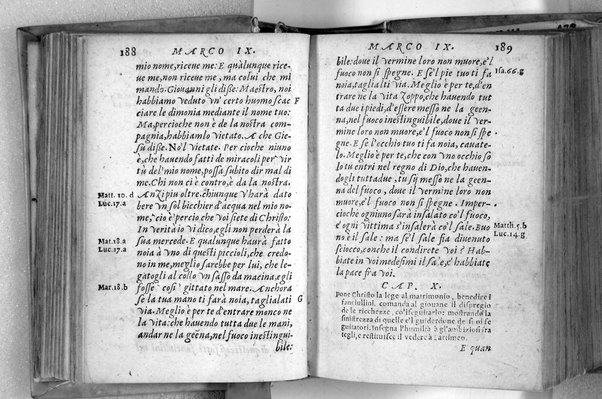 188 MARCO IX.
mio nome, riceue me: E qualunque rice-
ue me, non riceue me, ma colui che mi
mandò. Giouanni gli disse: Maestro, noi
habbiamo veduto vn' certo huomo scac
ciare le dimonia mediante il nome tuo:
F
Ma percioche non è de la nostra com-
pagnia, habbiamlo vietato. A che Gie-
sù disse. No'l Vietate. Per cioche niuno
è, che hauendo fatti de miracoli per vir
tù del mio nome, possa subito dir mal di
me. Chi non ci è contro, è da la nostra.
Matt. 10. d
Luc. 17. a
Anzi piu oltre, chiunque v'harà dato
bere vn sol bicchier d'acqua nel mio no-
me, ciò è percio che voi siete di Christo:
In verità io vi dico, egli non perderà la
Mat. 18. a
Luc. 17. a
sua mercede. E qualunque haurà fatto
noia à vno di questi piccioli, che credo-
no in me, meglio sarebbe per lui, che le-
gatogli al collo vn sasso da macina, egli
Mar. 18. b
fosse così gittato nel mare. Anchora
se la tua mano ti farà noia, tagliala ti
G
via. Meglio è per te d'entrare monco ne
la vita: che hauendo tutta due le mani,
andar ne la geēna, nel fuoco inestingui-
bile:
MARCO IX. 189
bile: doue il vermine loro non muore, e'l
fuoco non si spegne. E se'l pie tuo ti fa
Isa. 66. g
noia, taglialti via. Meglio è per te, d'en
trare ne la vita Zoppo, che hauendo tut
ta due i piedi, d'essere messo ne la geen-
na, nel fuoco inestinguibile, doue il ver-
mine loro non muore, e'l fuoco non si spe
gne. E se l'occhio tuo ti fa noia, cauate-
lo. Meglio è per te, che con vno occhio so
lo tu entri nel regno di Dio, che hauen-
dogli tutta due, tu sij messo ne la geen-
na del fuoco, doue il vermine loro non
muore, e'l fuoco non si spegne. Imper-
cioche ogniuno sarà insalato co'l fuoco,
e ogni vittima s'insalerà co'l sale. Buo
Matth. 5. b
Luc. 14. g
no è il sale: ma se'l sale sia diuenuto
sciocco, con che il condirete voi? Hab-
biate in voi medesimi il sale, e habbiate
la pace fra voi.
CAP. X.
Pone Christo la lege al matrimonio, benedice i
fanciullini, comanda al giouane il dispregio
de le ricchezze, co'l seguitarlo: mostrando la
sinistrezza di quelle e'l guiderdone de si se-
guitatori. insegna l'humiltà à gl'ambiziosi fra
tegli, e restituisce il vedere à Bartimeo.
E quan